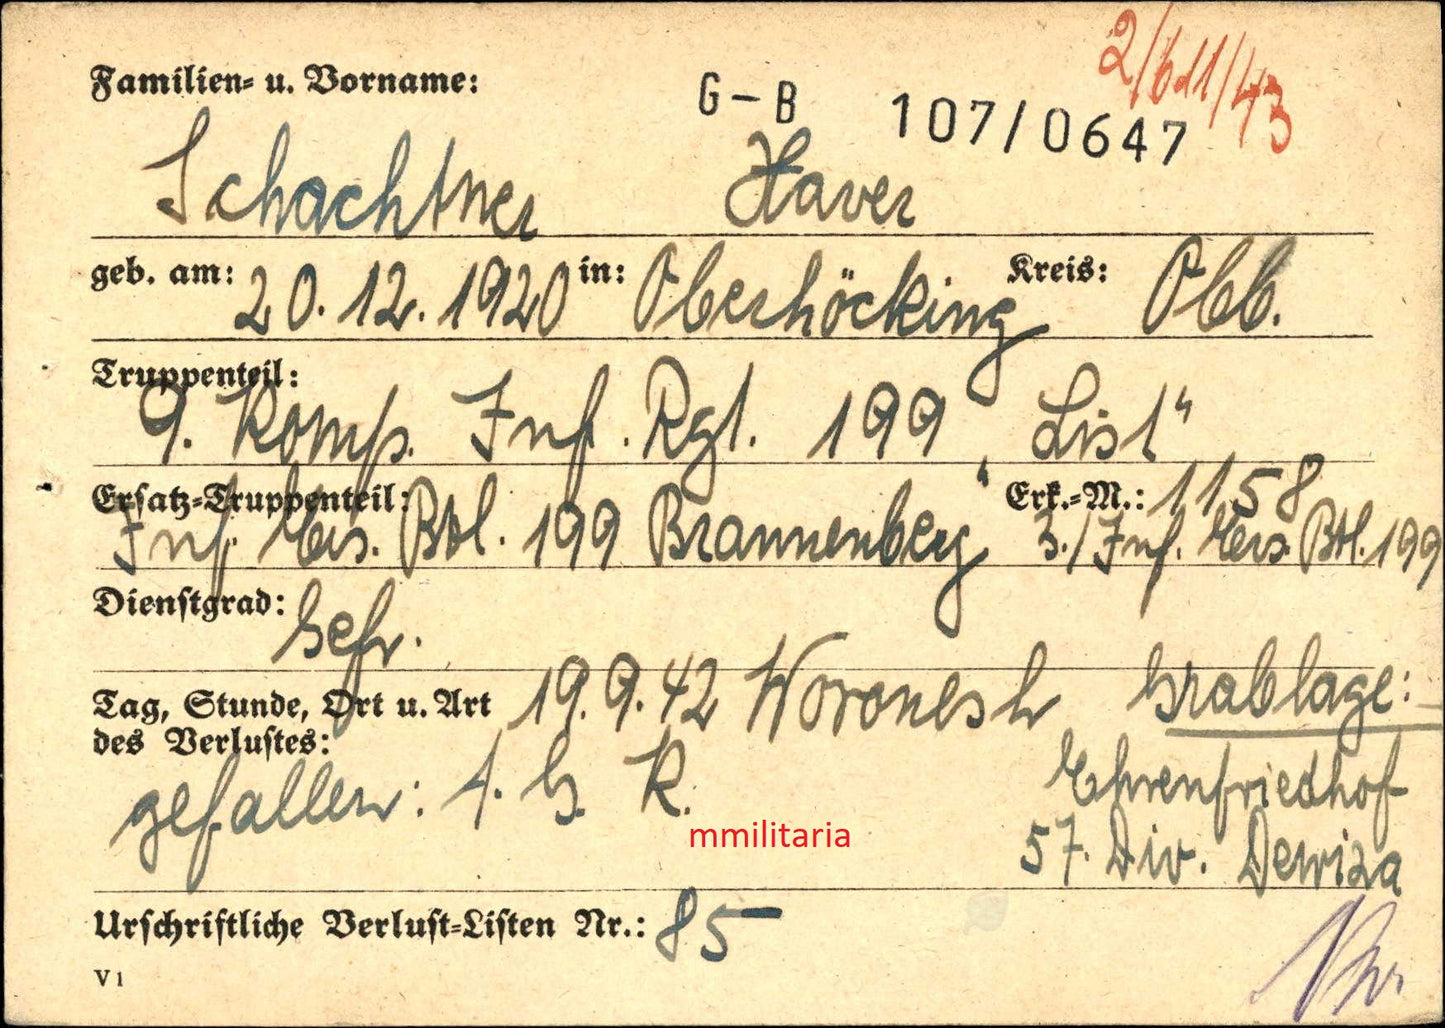 2/611/43
Familien- u. Vorname:
G-B 107/0647
Schachtner Xaver
geb. am: 20.12.1920 in: Oberhöcking Kreis: Obb.
Truppenteil:
9. Komp. Inf. Rgt. 199 „List“
Ersatz-Truppenteil: Erk.-M.: 1158
Inf. Ers. Btl. 199 Brannenberg 3./Inf. Ers. Btl. 199
Dienstgrad: Gefr.
Tag, Stunde, Ort u. Art 19.9.42 Woronesh Grablage:
des Verlustes:
gefallen: A. G. K. Ehrenfriedhof
57. Div. Dewiza
mmilitaria
Urschriftliche Verlust-Listen Nr.: 85
V 1